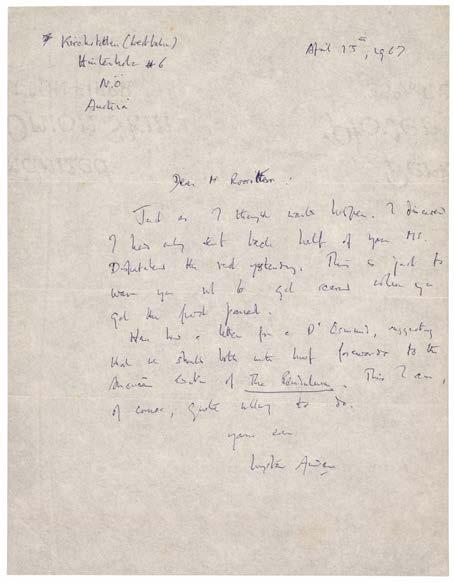 Kirchstetten (Westbahn)
Hinterholz #6
N.Ö
Austria
April 15th, 1967
Dear M
Just as I thought would happen. I discover
I have only sent back half of your MS.
Dispatched the rest yesterday. This is just to
warn you not to get scared when you
get the first parcel.
Have had a letter from a Dr Osmund, suggesting
that we should both write brief forewords to the
American edition of The Pendulum. This I am,
of course, quite willing to do.
yours ever
Wystan Auden